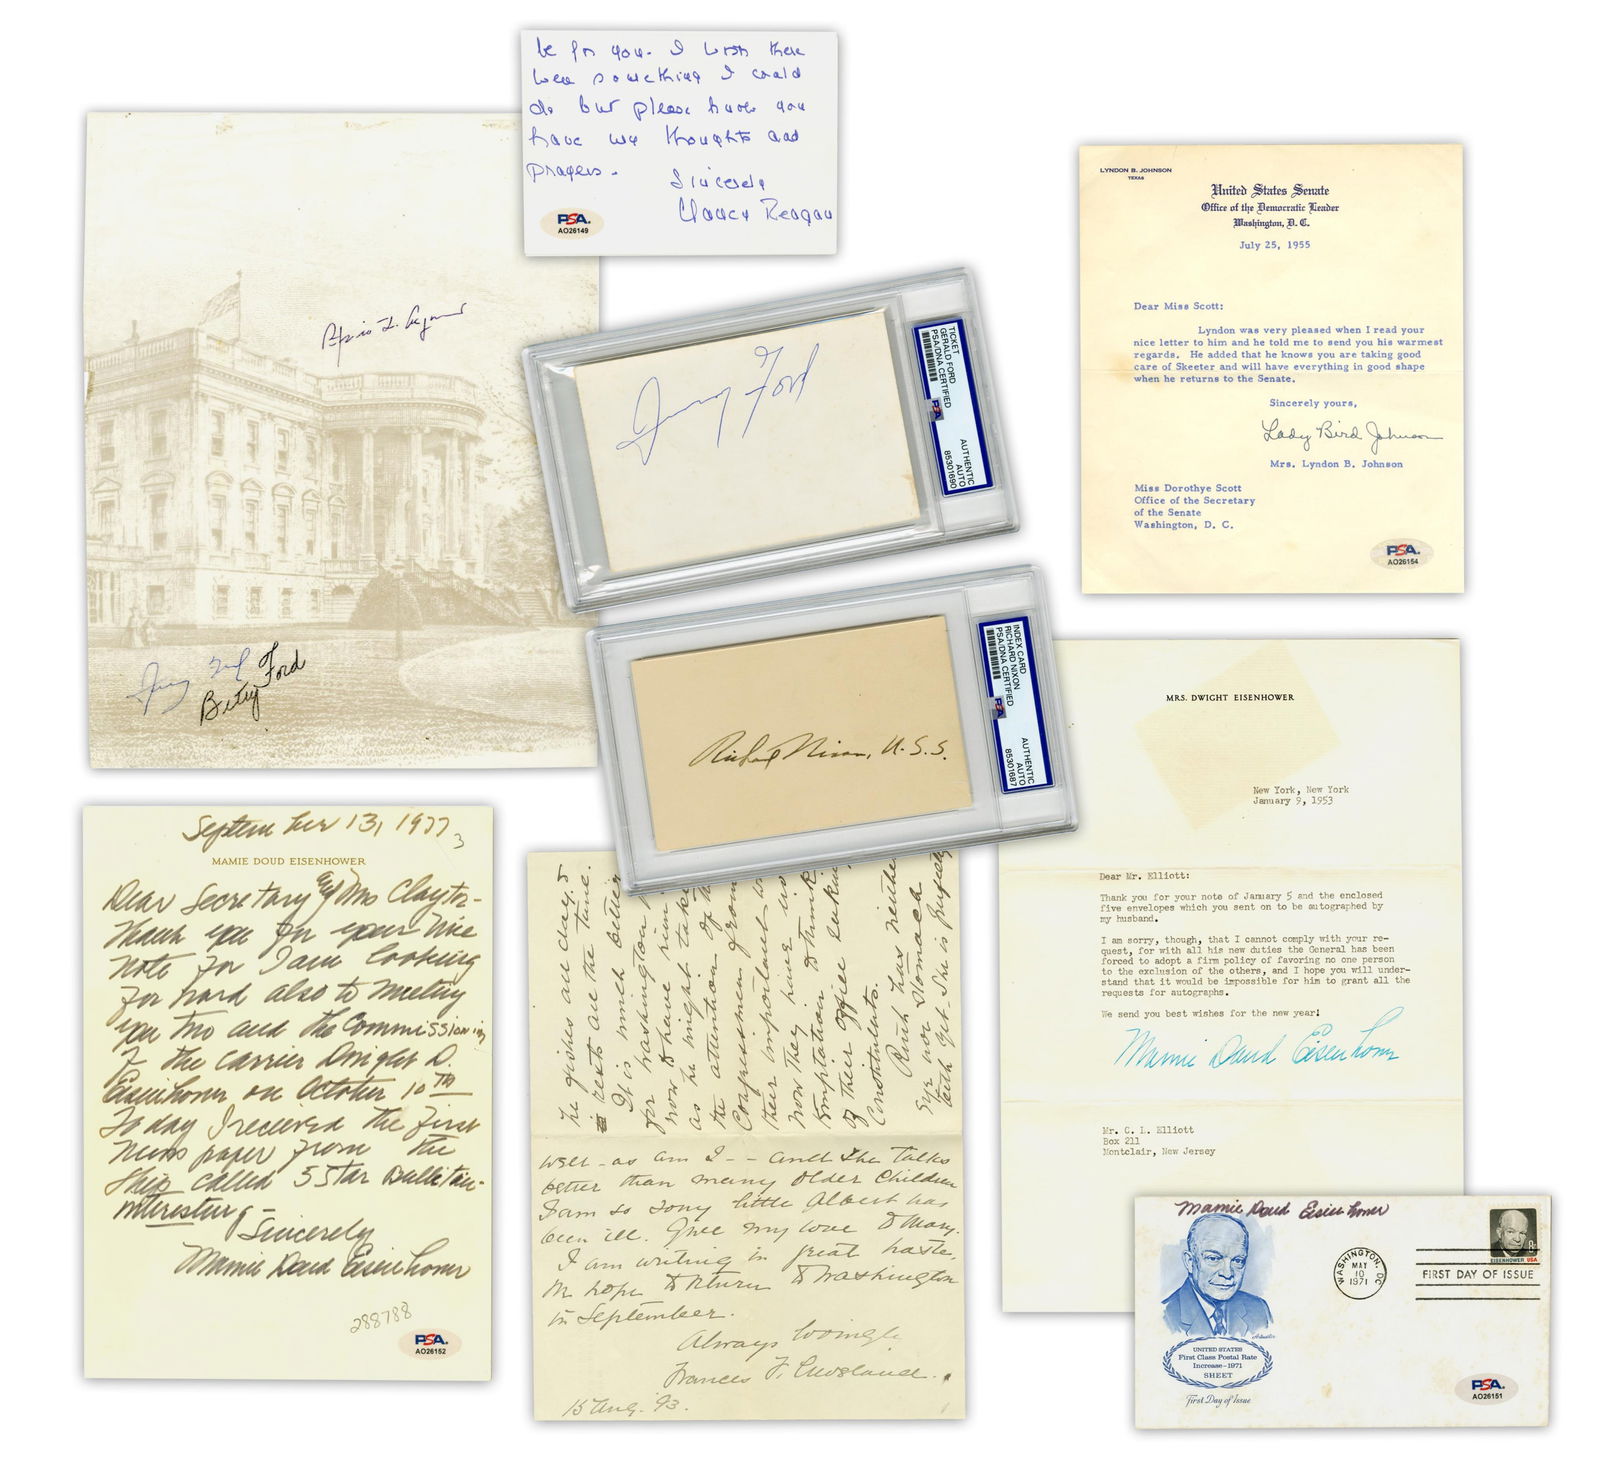 be for you. I wish there
were something I could
do but please know you
have my thoughts and
prayers.
Sincerely
Nancy Reagan
PSA
AO26149
Jerry Ford
Betty Ford
Jerry Ford
TICKET
GERALD FORD
PSA/DNA CERTIFIED
PSA
AUTHENTIC
AUTO
85301690
LYNDON B. JOHNSON
TEXAS
United States Senate
Office of the Democratic Leader
Washington, D. C.
July 25, 1955
Dear Miss Scott:
Lyndon was very pleased when I read your
nice letter to him and he told me to send you his warmest
regards. He added that he knows you are taking good
care of Skeeter and will have everything in good shape
when he returns to the Senate.
Sincerely yours,
Lady Bird Johnson
Mrs. Lyndon B. Johnson
Miss Dorothye Scott
Office of the Secretary
of the Senate
Washington, D. C.
PSA
AO26154
Richard Nixon, U.S.S.
INDEX CARD
RICHARD NIXON
PSA/DNA CERTIFIED
PSA
AUTHENTIC
AUTO
85301687
MRS. DWIGHT EISENHOWER
New York, New York
January 9, 1953
Dear Mr. Elliott:
Thank you for your note of January 5 and the enclosed
five envelopes which you sent on to be autographed by
my husband.
I am sorry, though, that I cannot comply with your re-
quest, for with all his new duties the General has been
forced to adopt a firm policy of favoring no one person
to the exclusion of the others, and I hope you will under-
stand that it would be impossible for him to grant all the
requests for autographs.
We send you best wishes for the new year!
Mamie Doud Eisenhower
Mr. C. L. Elliott
Box 211
Montclair, New Jersey
September 13, 1977
3
MAMIE DOUD EISENHOWER
Dear Secretary and Mrs Clayton-
Thank you for your nice
note for I am looking
forward also to meeting
you two and the Commissioning
of the carrier Dwight D.
Eisenhower on October 10TH
Today I received the first
news paper from the
ship called 5 Star Bulletin-
interesting-
Sincerely
Mamie Doud Eisenhower
288788
PSA
AO26152
he wishes all day &
rests all the time.
It is much better
for Washington
now to have
as he might take
the attention of the
Congressmen from
their important
now they have no
temptation to think
of their office seeking
constituents.
Ruth has neither
eye nor stomach
teeth yet. She is perfectly
well - as am I -- and she talks
better than many older children
I am so sorry little Albert has
been ill. Give my love to Mary.
I am writing in great haste,
We hope to return to Washington
in September.
Always lovingly
Frances F. Cleveland.
15 Aug. '93.
Mamie Doud Eisenhower
WASHINGTON, DC
MAY
10
1971
EISENHOWER USA
8c
FIRST DAY OF ISSUE
UNITED STATES
First Class Postal Rate
Increase-1971
SHEET
First Day of Issue
PSA
AO26151